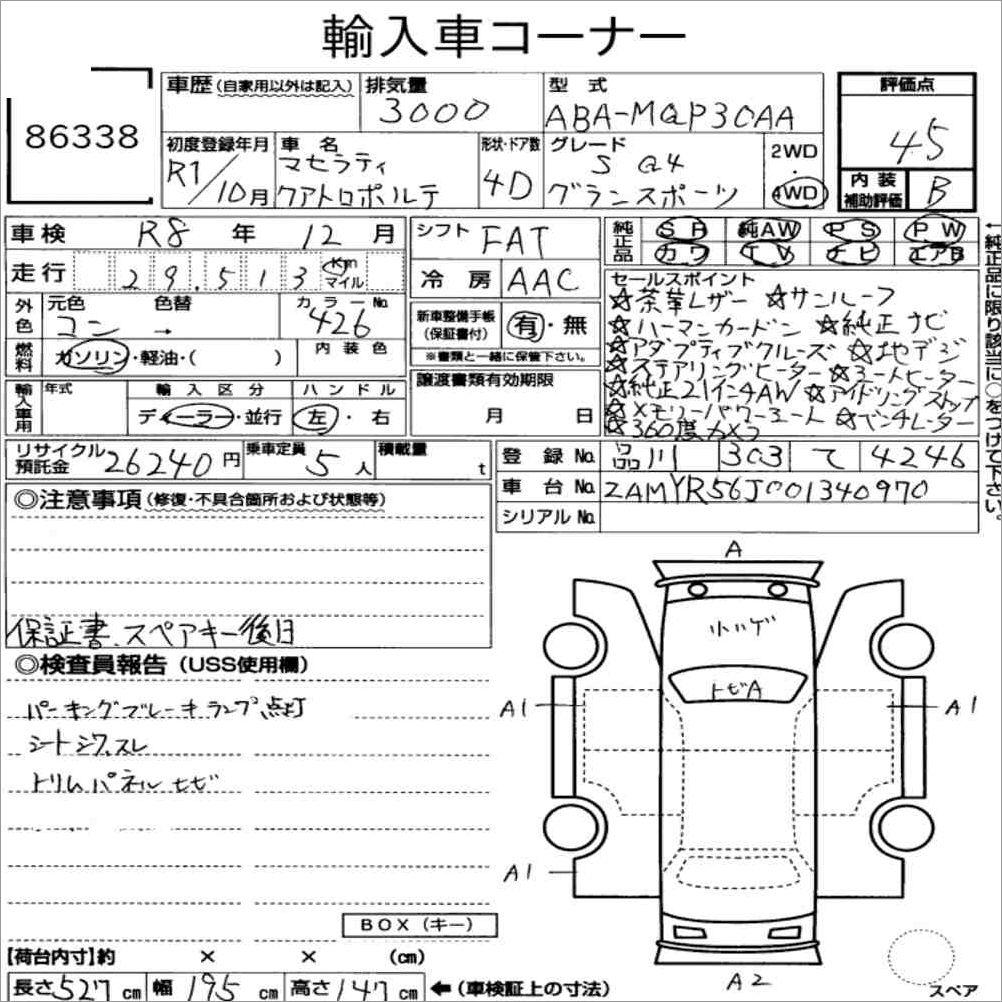 輸入車コーナー
86338
車歴(自家用以外は記入) 排気量 3000 型式 ABA-MQP30AA 評価点 4.5
初度登録年月 R1/10月 車名 マセラティ クアトロポルテ 形状・ドア数 4D グレード S Q4 グランスポーツ 2WD 4WD 内装補助評価 B
車検 R8年 12月 シフト FAT 純正品 SR 純AW PS PW
走行 29,513 Km マイル 冷房 AAC カワ TV ナビ エアB
外色 元色 コン 色替 → カラーNo. 426
新車整備手帳(保証書付) 有・無
※書類と一緒に保管下さい。
燃料 ガソリン・軽油・( ) 内装色
輸入車用 年式 輸入区分 ディーラー・並行 ハンドル 左・右
譲渡書類有効期限 月 日
セールスポイント
☆茶革レザー ☆サンルーフ
☆ハーマンカードン ☆純正ナビ
☆アダプティブクルーズ ☆地デジ
☆ステアリングヒーター ☆シートヒーター
☆純正21インチAW ☆アイドリングストップ
☆メモリーパワーシート ☆ベンチレーター
☆360度カメラ
←純正品に限り該当に○をつけて下さい。
リサイクル預託金 26240円 乗車定員 5人 積載量 t
登録No. 品川 303 て 4246
車台No. ZAMYR56J001340970
シリアルNo.
◎注意事項(修復・不具合箇所および状態等)
保証書、スペアキー後日
◎検査員報告(USS使用欄)
パーキングブレーキランプ点灯
シートシワ、スレ
トリムパネルヒビ
A
トビA
A1
A1
A1
A2
スペア
BOX(キー)
【荷台内寸】約 × × (cm)
長さ527cm 幅195cm 高さ147cm ←(車検証上の寸法)